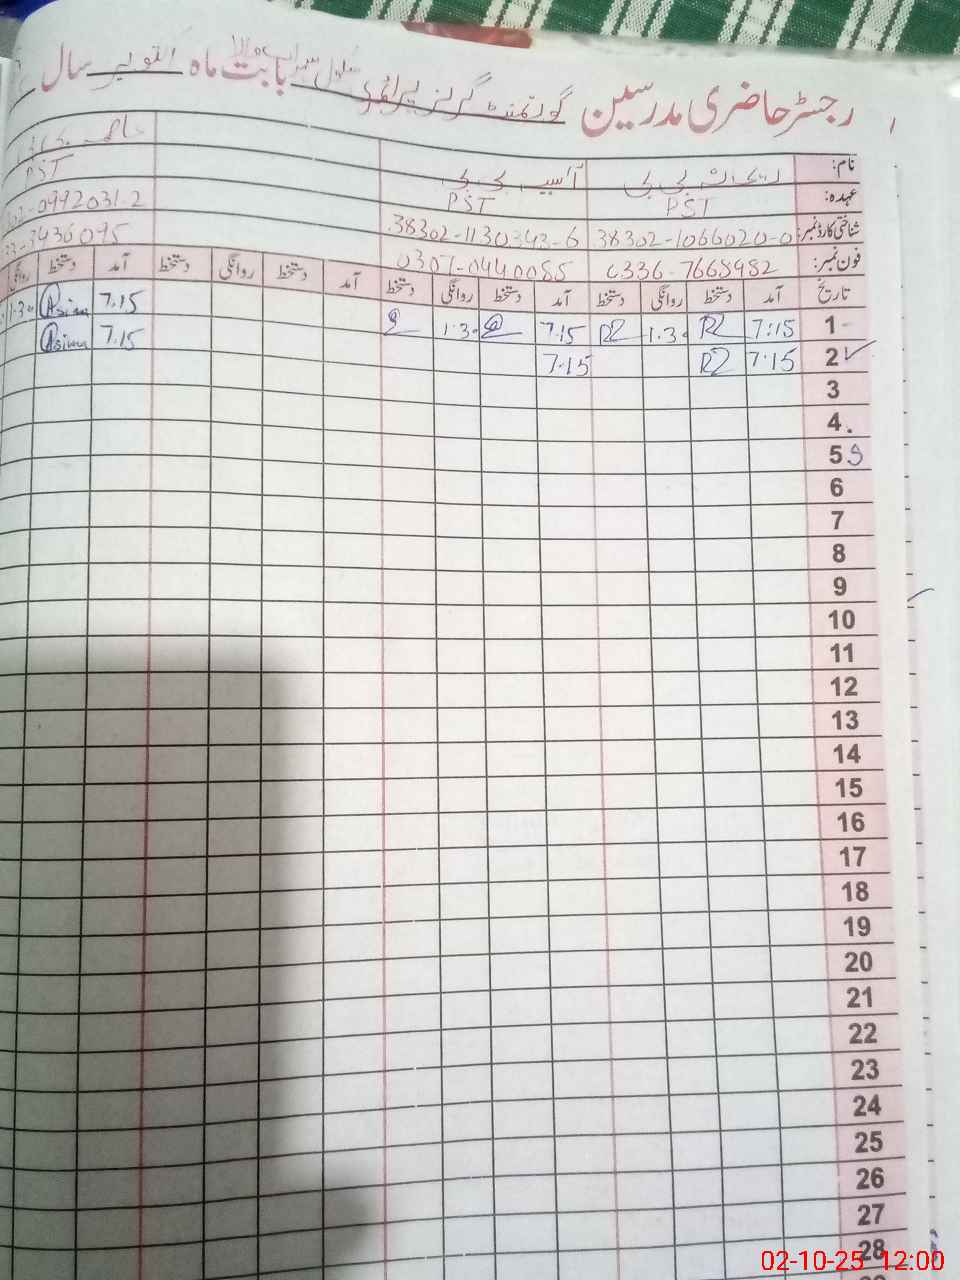 رجسٹر حاضری مدرسین گورنمنٹ گرلز پرائمری سکول بابت ماہ اکتوبر سال
نام: ریحانہ بی بی آسیہ بی بی
عہدہ: PST PST PST
شناختی کارڈ نمبر: 38302-1066020-0 38302-1130343-6 302-0992031-2
فون نمبر: 0336-7668982 0307-0440085 33-3436095
تاریخ آمد دستخط روانگی دستخط آمد دستخط روانگی دستخط آمد دستخط روانگی دستخط آمد دستخط روانگی
1 7:15 RZ 1.30 RZ 7.15 1.30 7.15 Asima 1.30
2 7:15 RZ 7.15 7.15 Asima
3
4
5
6
7
8
9
10
11
12
13
14
15
16
17
18
19
20
21
22
23
24
25
26
27
28
02-10-25 12:00